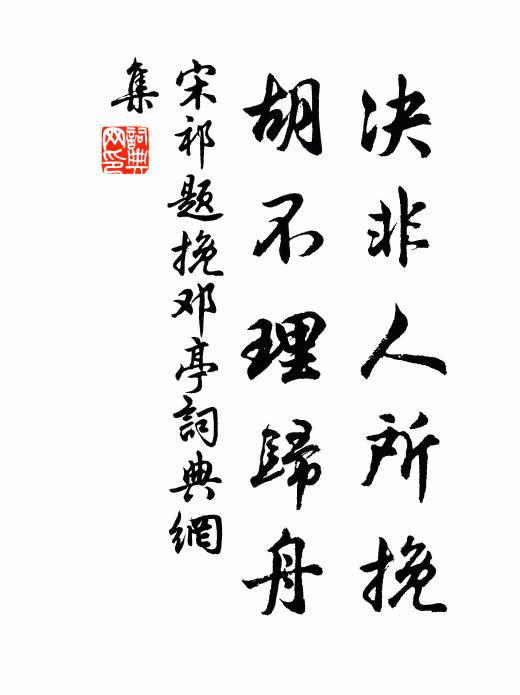 决非人所挽
胡不理歸舟
宋祁题挽邓亭詞典網
集
詞典网印